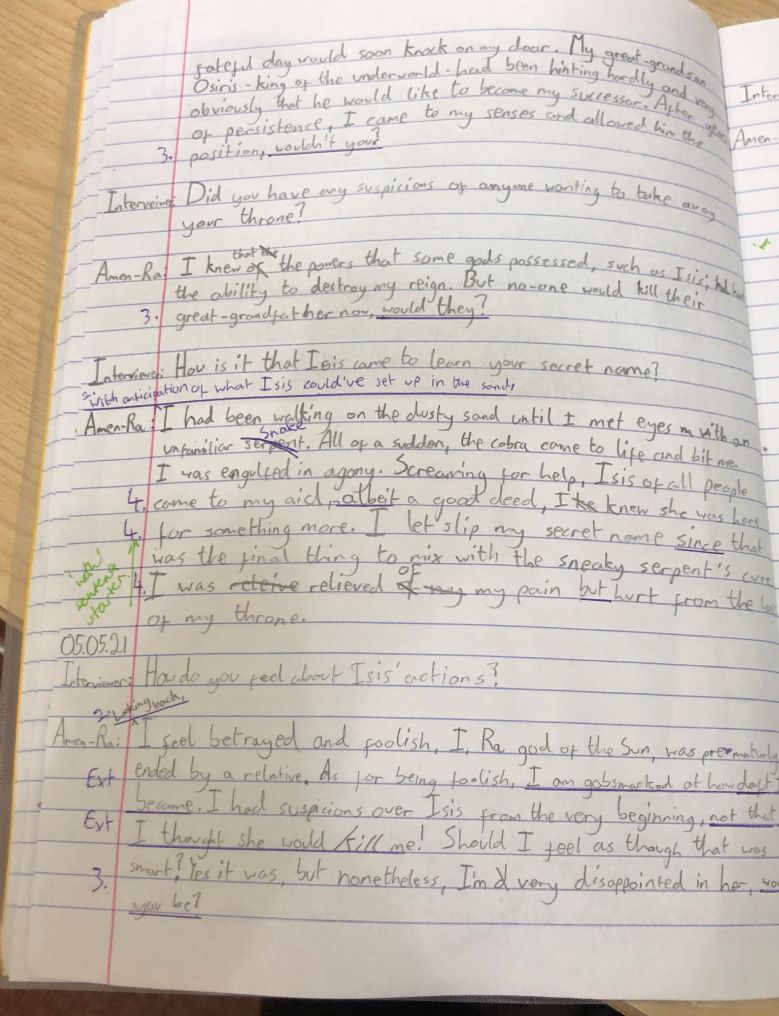 fateful day would soon knock on my door. My great-grandson
Osiris - king of the underworld - had been hinting hardly and very
obviously that he would like to become my successor. After years
of persistence, I came to my senses and allowed him the
3. position, wouldn't you?
Interveiwer: Did you have any suspicions of anyone wanting to take away
your throne?
that the
Amen-Ra: I knew of the powers that some gods possessed, such as Isis, had
the ability to destroy my reign. But no-one would kill their
3. great-grandfather now, would they?
Interviewer: How is it that Isis came to learn your secret name?
2. With anticipation of what Isis could've set up in the sand,
Amen-Ra: I had been walking on the dusty sand until I met eyes with an
snake
unfamiliar serpent. All of a sudden, the cobra came to life and bit me.
I was engulfed in agony. Screaming for help, Isis of all people
4. came to my aid, albeit a good deed, I knew she was here
4. for something more. I let slip my secret name since that
was the final thing to mix with the sneaky serpent's cure
'with' sentence starter
OF
4. I was relieved my pain but hurt from the loss
of my throne.
05.05.21
Interviewer: How do you feel about Isis' actions?
2. Looking back,
Amen-Ra: I feel betrayed and foolish, I, Ra god of the Sun, was prematurely
Ext ended by a relative. As for being foolish, I am gobsmacked at how daft I
became. I had suspicions over Isis from the very beginning, not that
Ext I thought she would kill me! Should I feel as though that was
smart? Yes it was, but nonetheless, I'm very disappointed in her,
3. you be?
Inter
Amen-